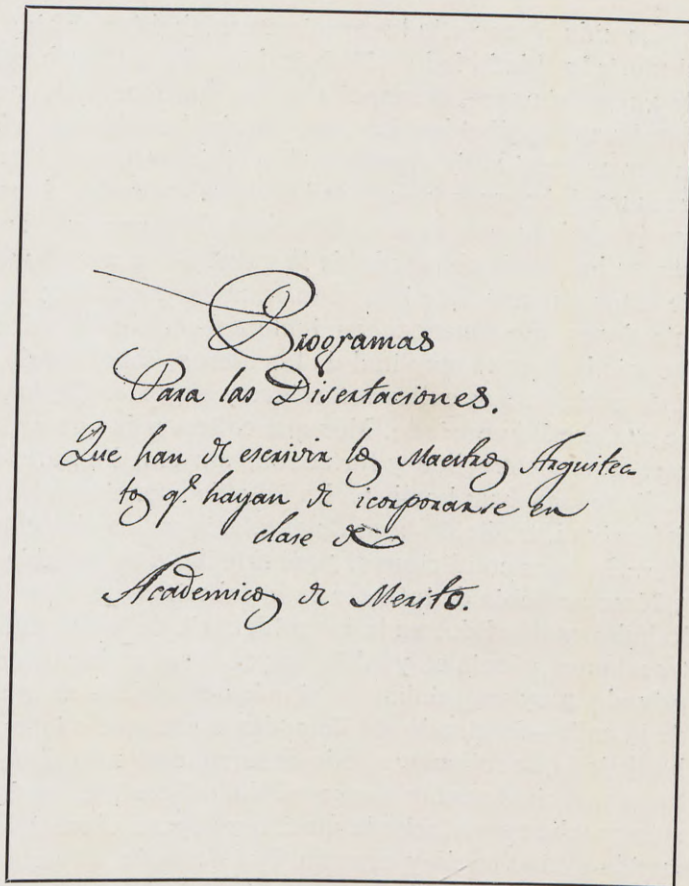 Programas
Para las Disertaciones.
Que han de escrivir los Maestros Arquitec-
tos q.e hayan de icorporarse en
clase de
Academicos de Merito.